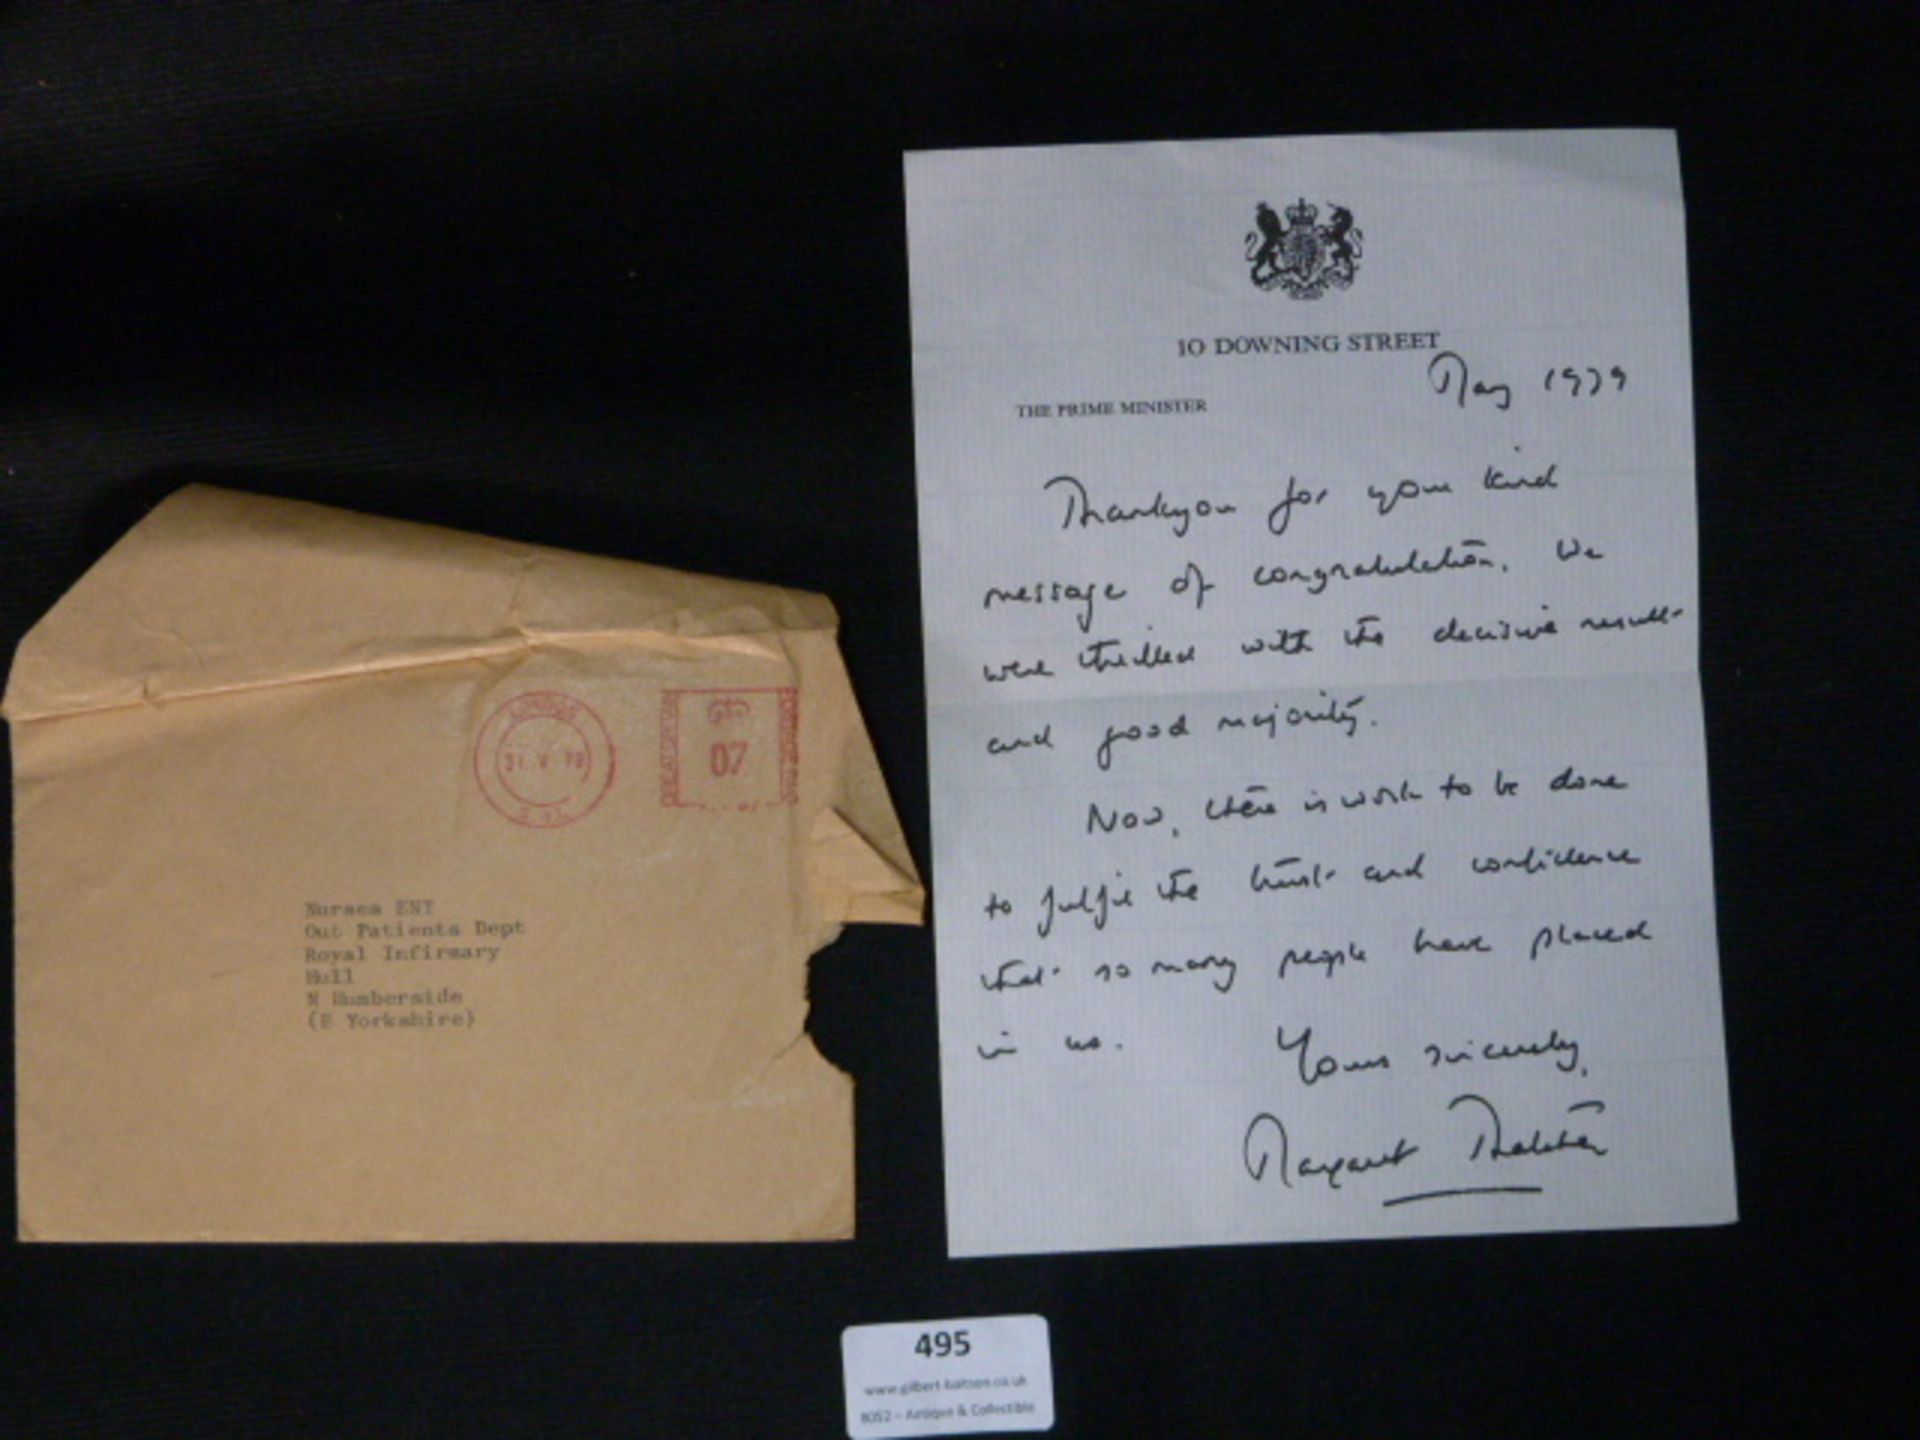 LONDON
GREAT BRITAIN
POSTAGE PAID
07
Nurses ENT
Out Patients Dept
Royal Infirmary
Hull
N Humberside
(E Yorkshire)
10 DOWNING STREET
May 1979
THE PRIME MINISTER
Thankyou for your kind
message of congratulation. We
were thrilled with the decisive result
and good majority.
Now, there is work to be done
to fulfil the trust and confidence
that so many people have placed
in us.
Yours sincerely,
Margaret Thatcher
495
www.gilbert-baitson.co.uk
8052 - Antique & Collectible